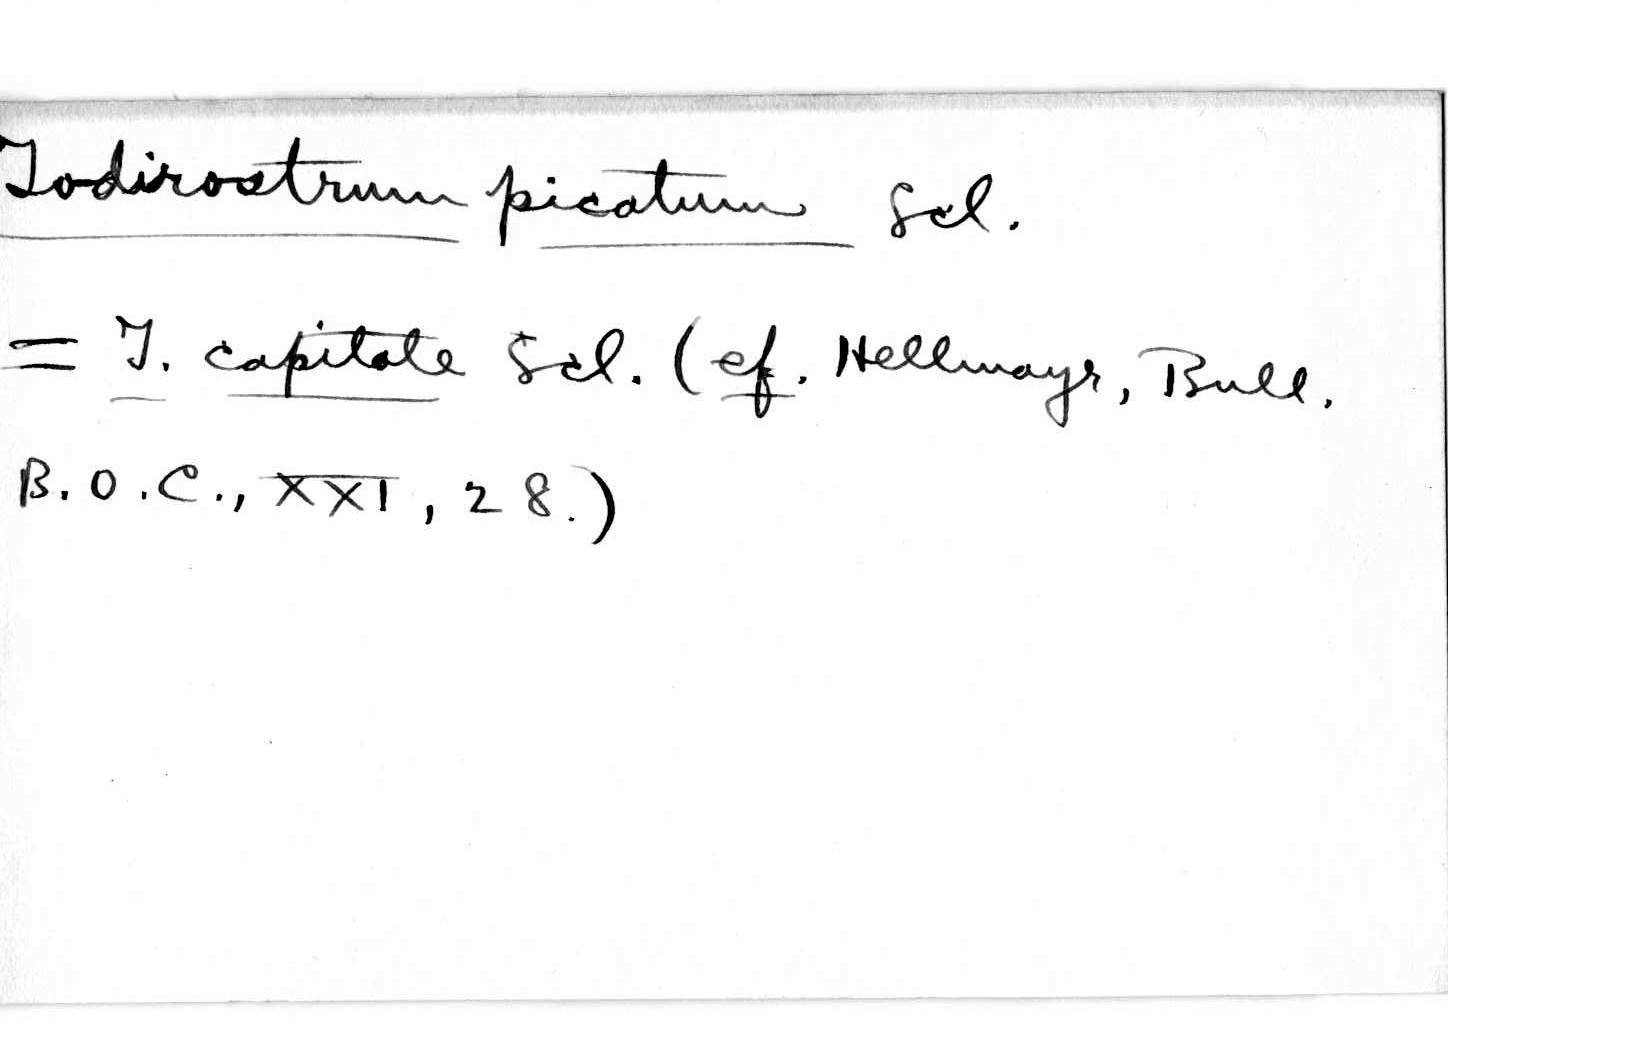 Todirostrum picatum Scl.
= T. capitale Scl. (cf. Hellmayr, Bull.
B.O.C., XXI, 28.)